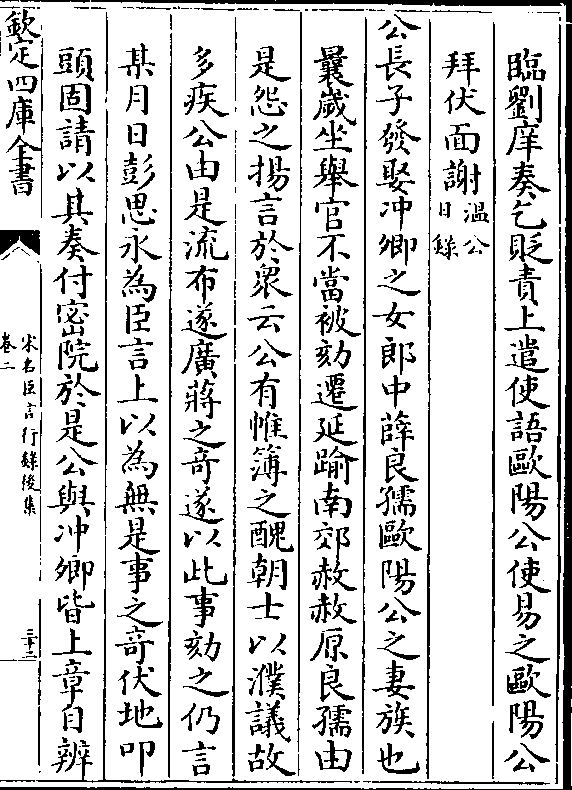 臨劉庠奏乞貶責上遣使語歐陽公使易之歐陽公
拜伏面謝溫公日錄
公長子發娶冲卿之女郎中薛良孺歐陽公之妻族也
曩歲坐舉官不當被劾遷延踰南郊赦赦原良孺由
是怨之揚言於衆云公有帷簿之醜朝士以濮議故
多疾公由是流布遂廣蔣之奇遂以此事劾之仍言
某月日彭思永為臣言上以為無是事之奇伏地叩
頭固請以其奏付密院於是公與冲卿皆上章自辨
欽定四庫全書
宋名臣言行錄後集
卷二
三十三